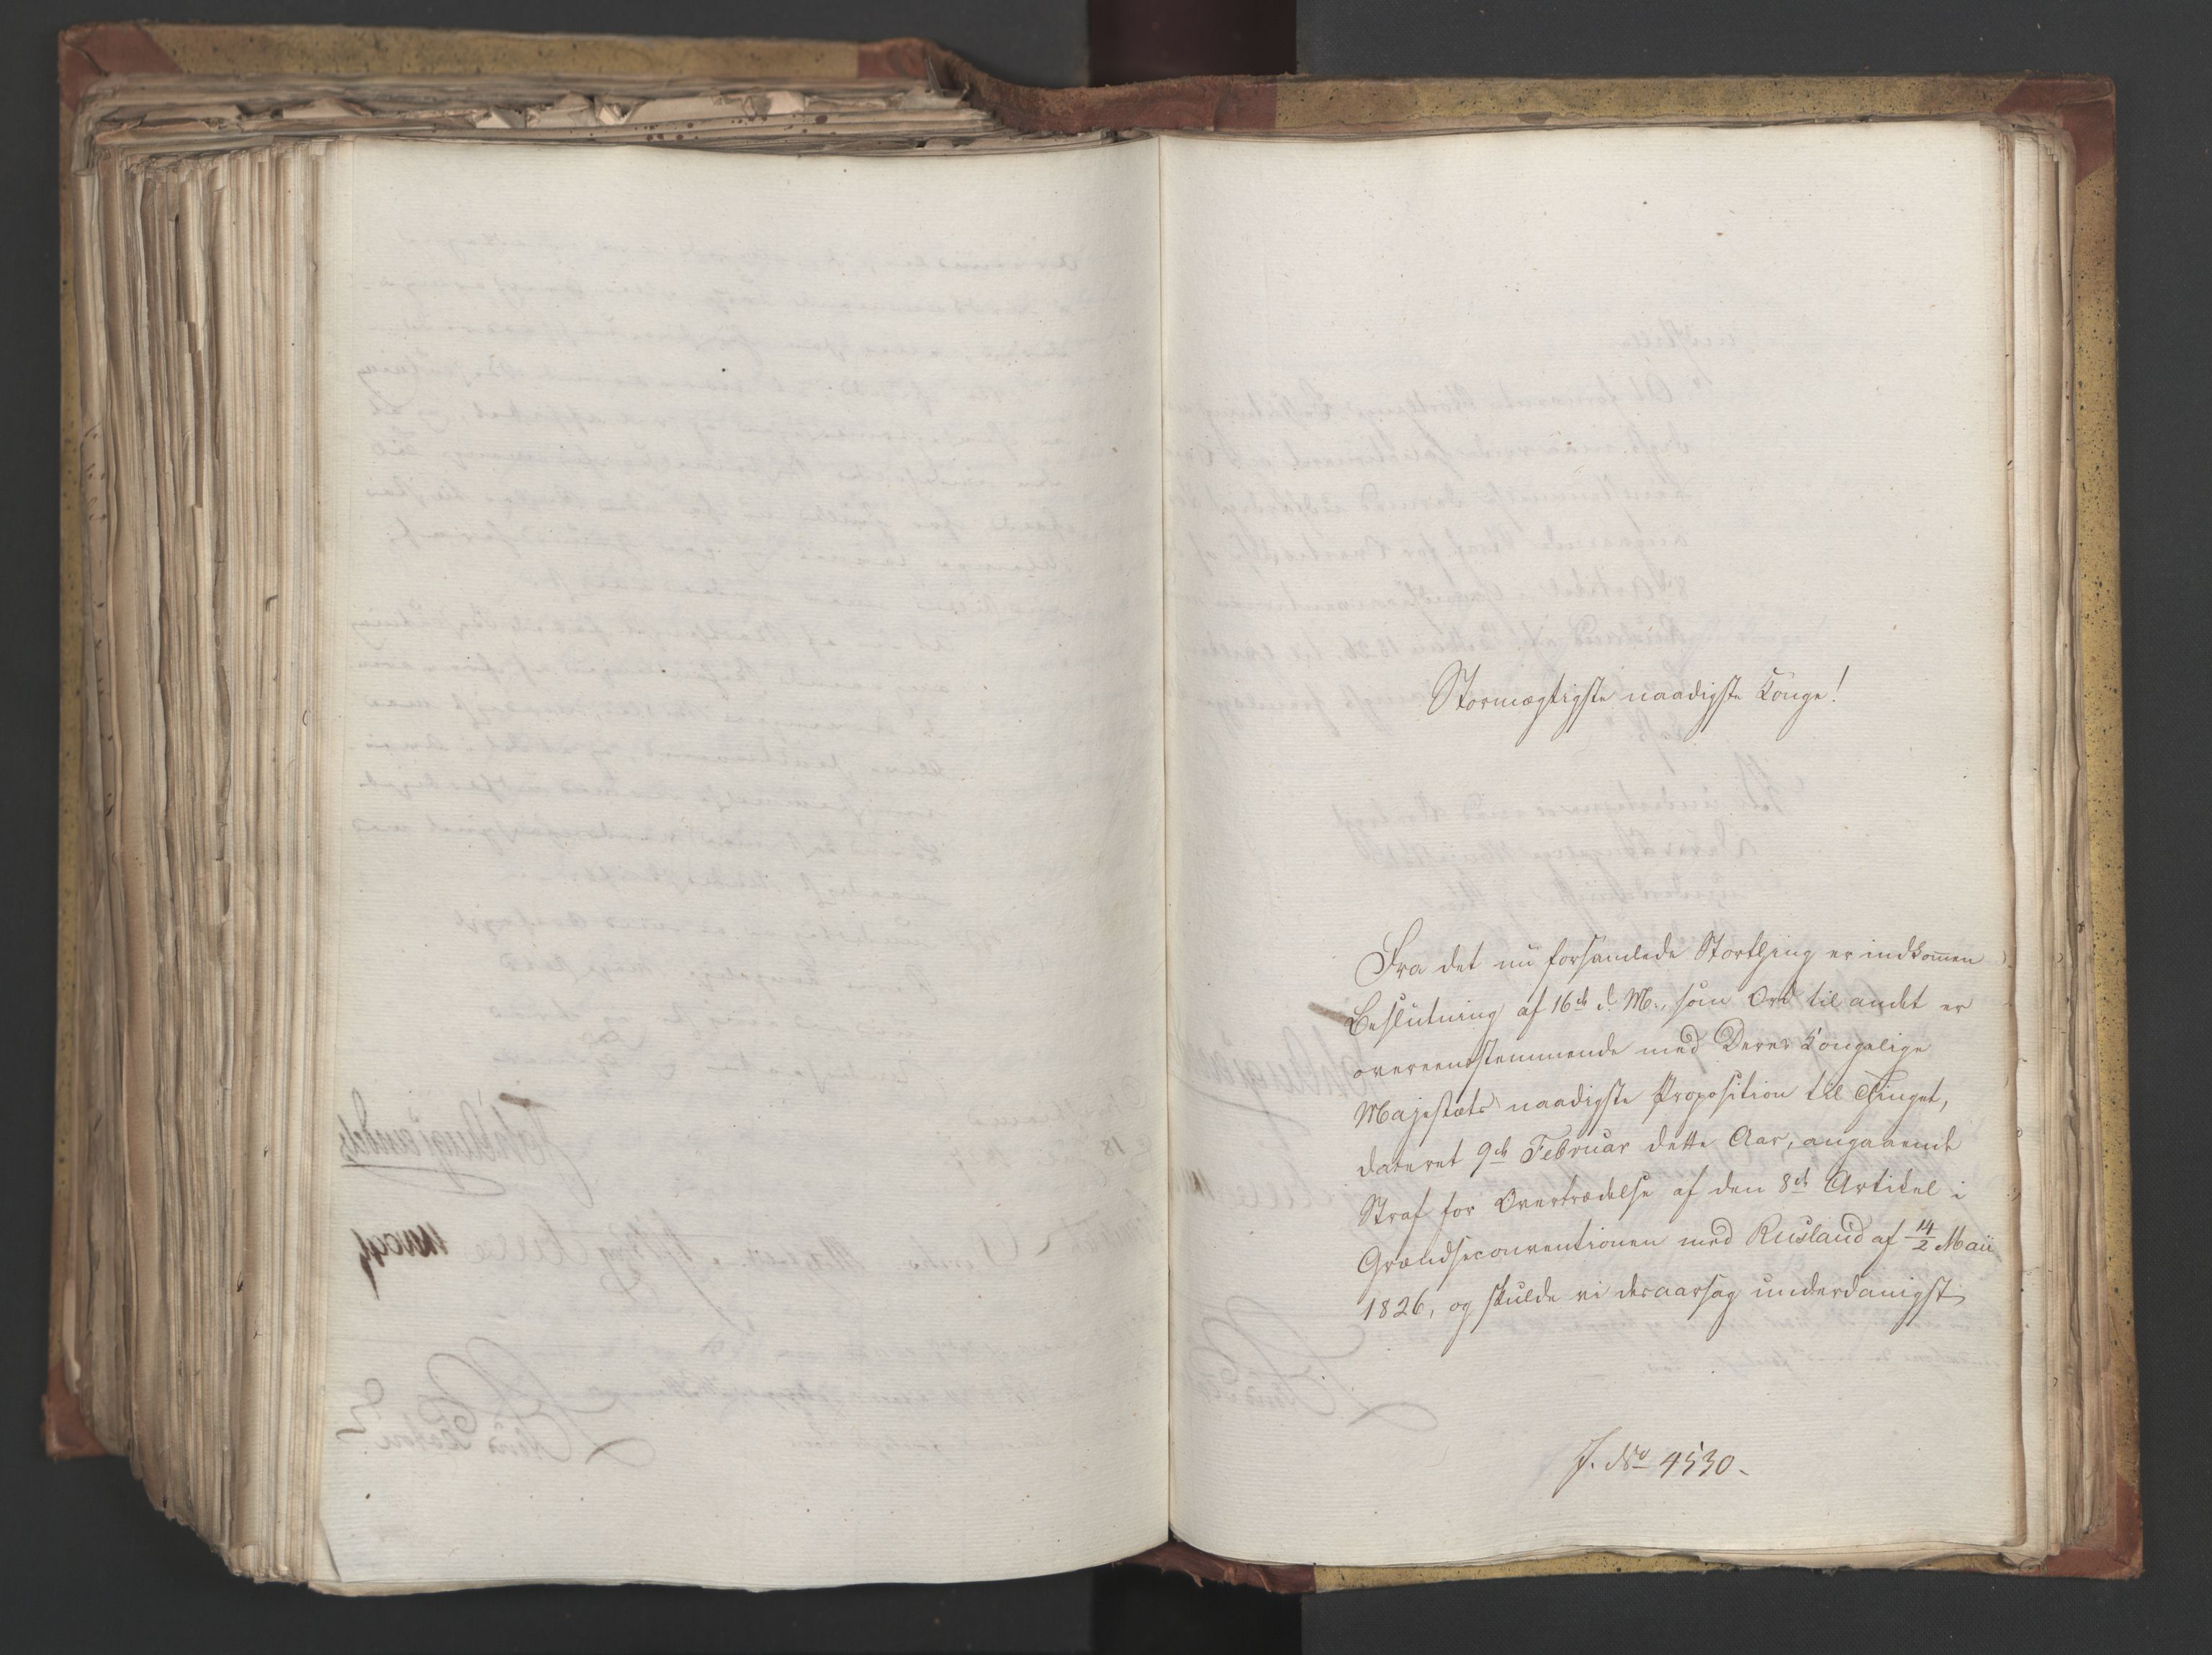 Stormægtigste naadigste Konge!
Fra det nu forsamlede Storthing er indkom̅en
Beslutning af 16de d. M., som Ord til andet er
overeenstemmende med Deres Kongelige
Majestæts naadigste Proposition til Thinget,
dateret 9de Februar dette Aar, angaaende
Straf for Overtrædelse af den 8de Artikel i
Grændseconventionen med Rusland af 14/2 Maii
1826, og skulde vi desaarsag underdanigst
J. No 4530.